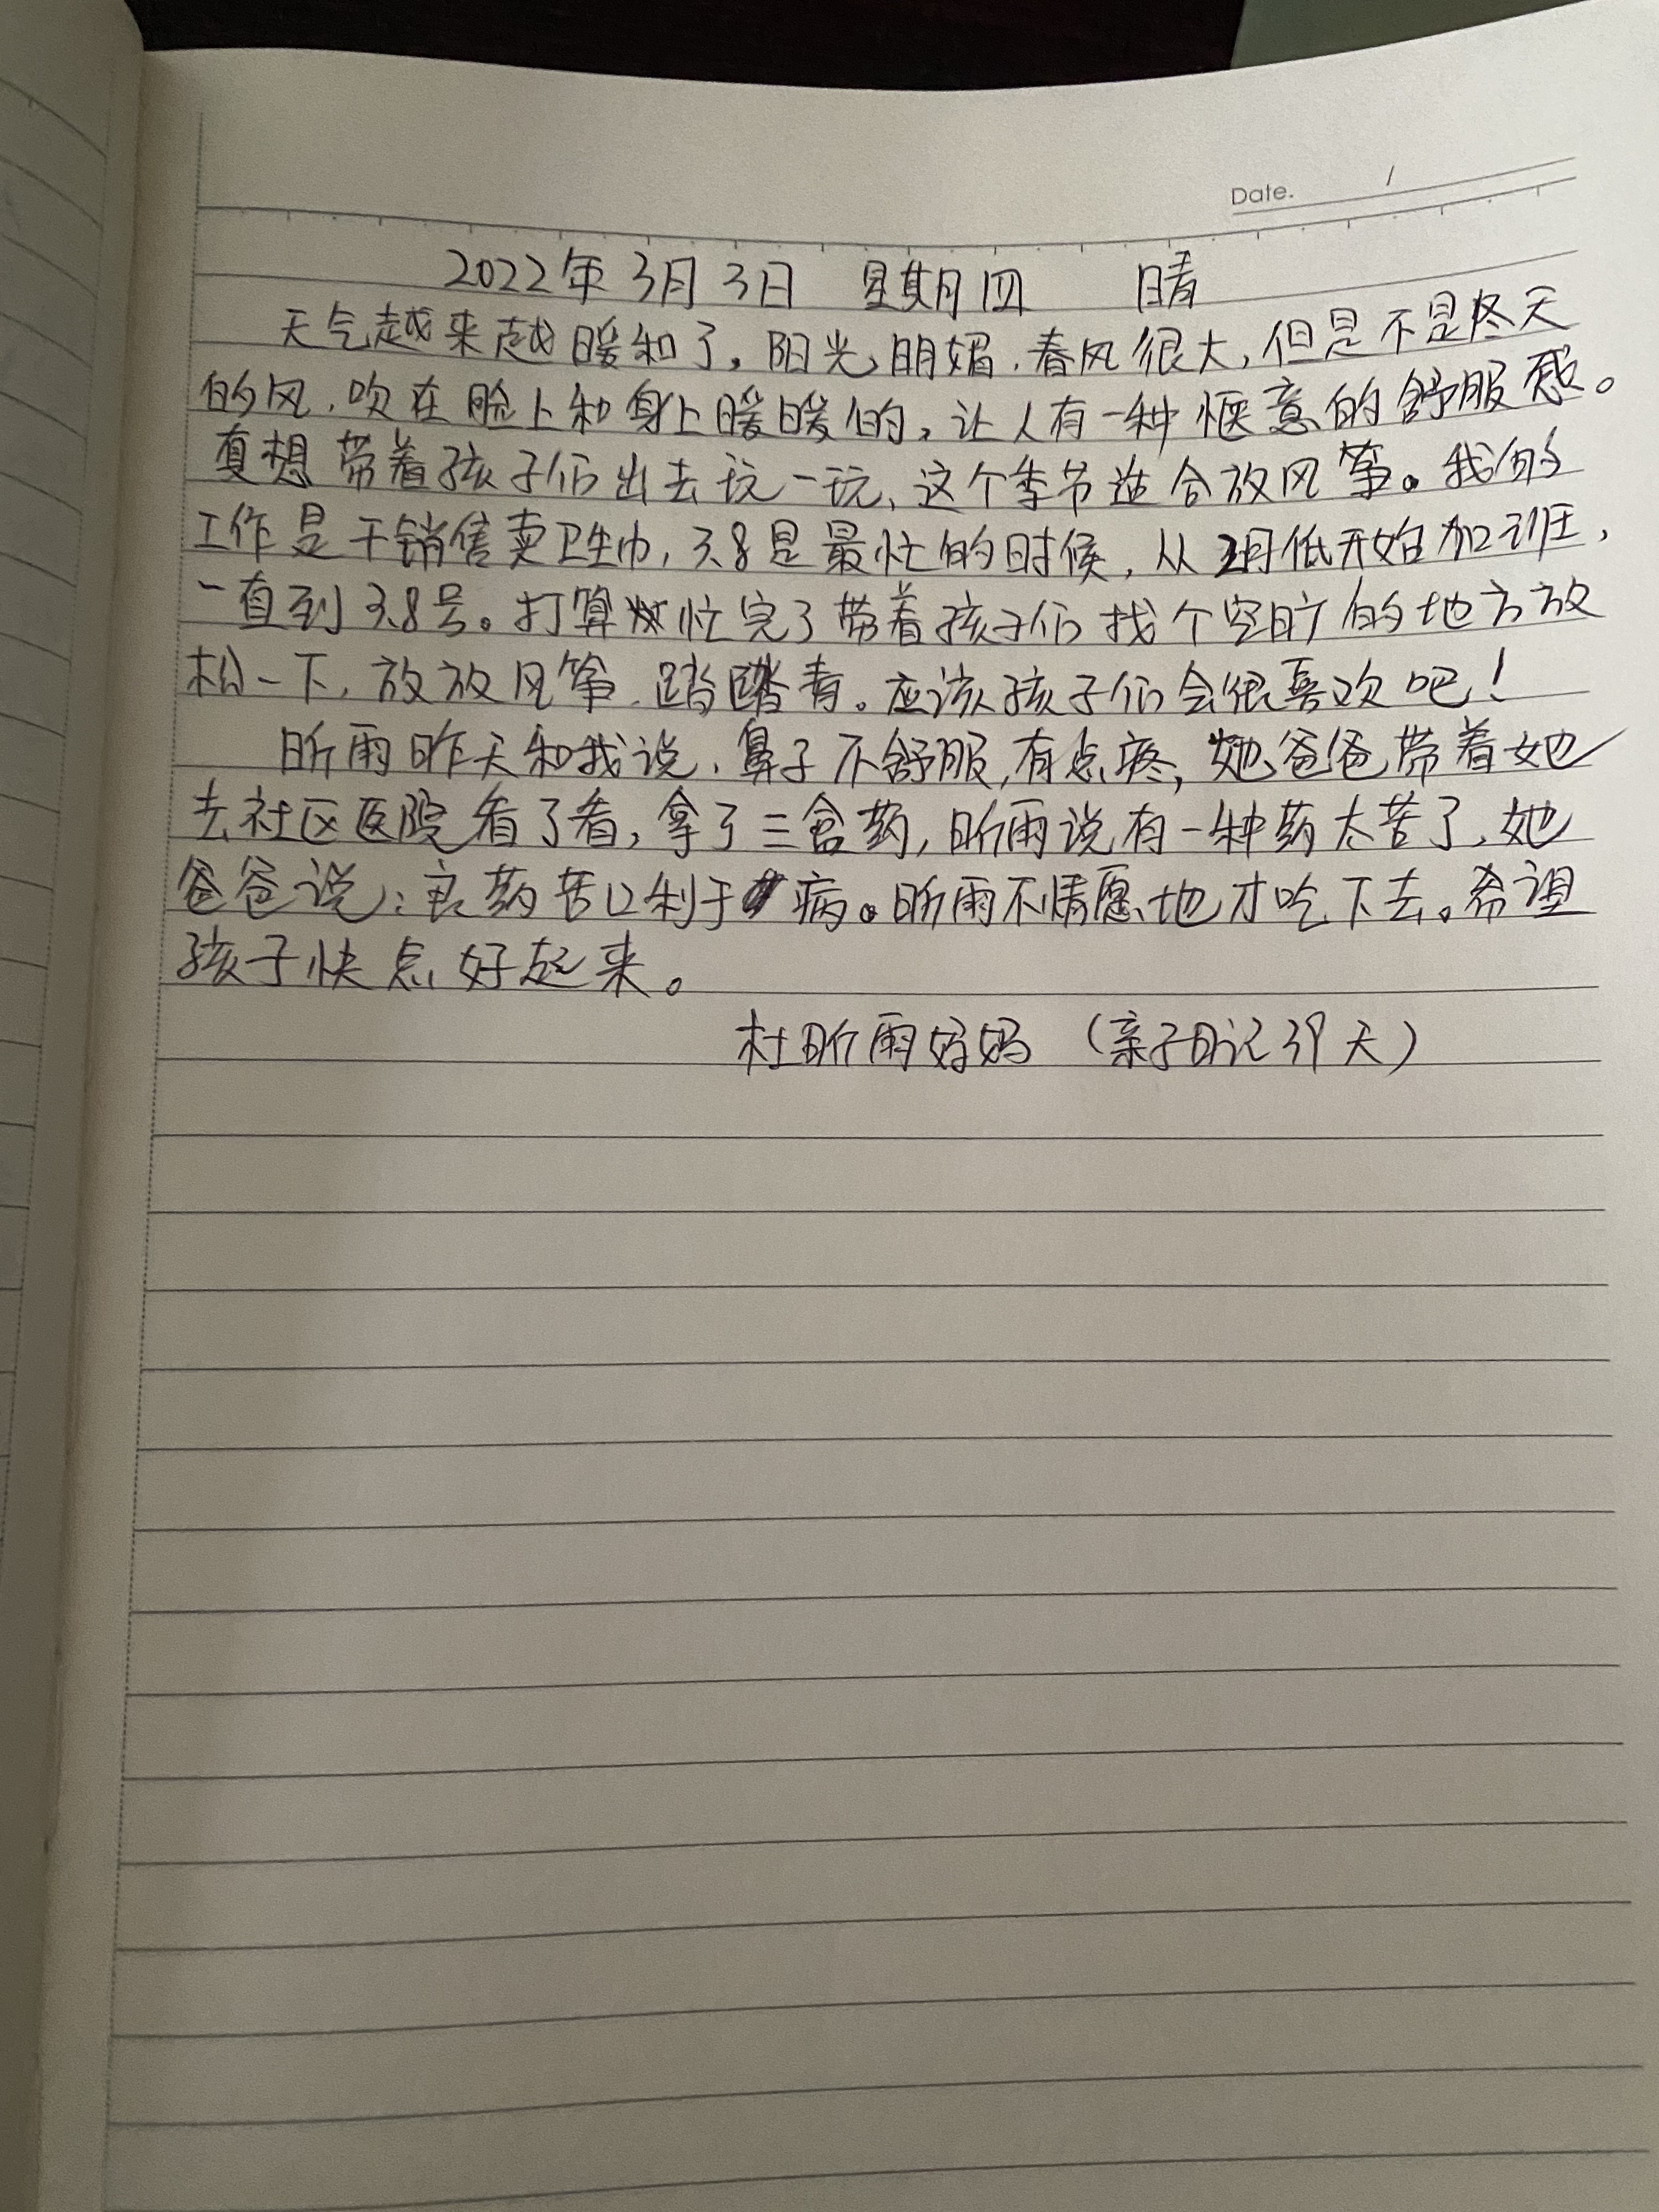 Date. /
2022年3月3日 星期四 晴
天气越来越暖和了，阳光明媚，春风很大，但是不是冬天
的风，吹在脸上和身上暖暖的，让人有一种惬意的舒服感。
真想带着孩子们出去玩一玩，这个季节适合放风筝。我的
工作是干销售卖卫生巾，3.8是最忙的时候，从2月低开始加班，
一直到3.8号。打算忙完了带着孩子们找个空旷的地方放
松一下，放放风筝，踏踏青。应该孩子们会很喜欢吧！
昕雨昨天和我说，鼻子不舒服，有点疼，她爸爸带着她
去社区医院看了看，拿了三盒药，昕雨说有一种药太苦了，她
爸爸说：良药苦口利于病。昕雨不情愿地才吃下去。希望
孩子快点好起来。
杜昕雨妈妈（亲子日记39天）